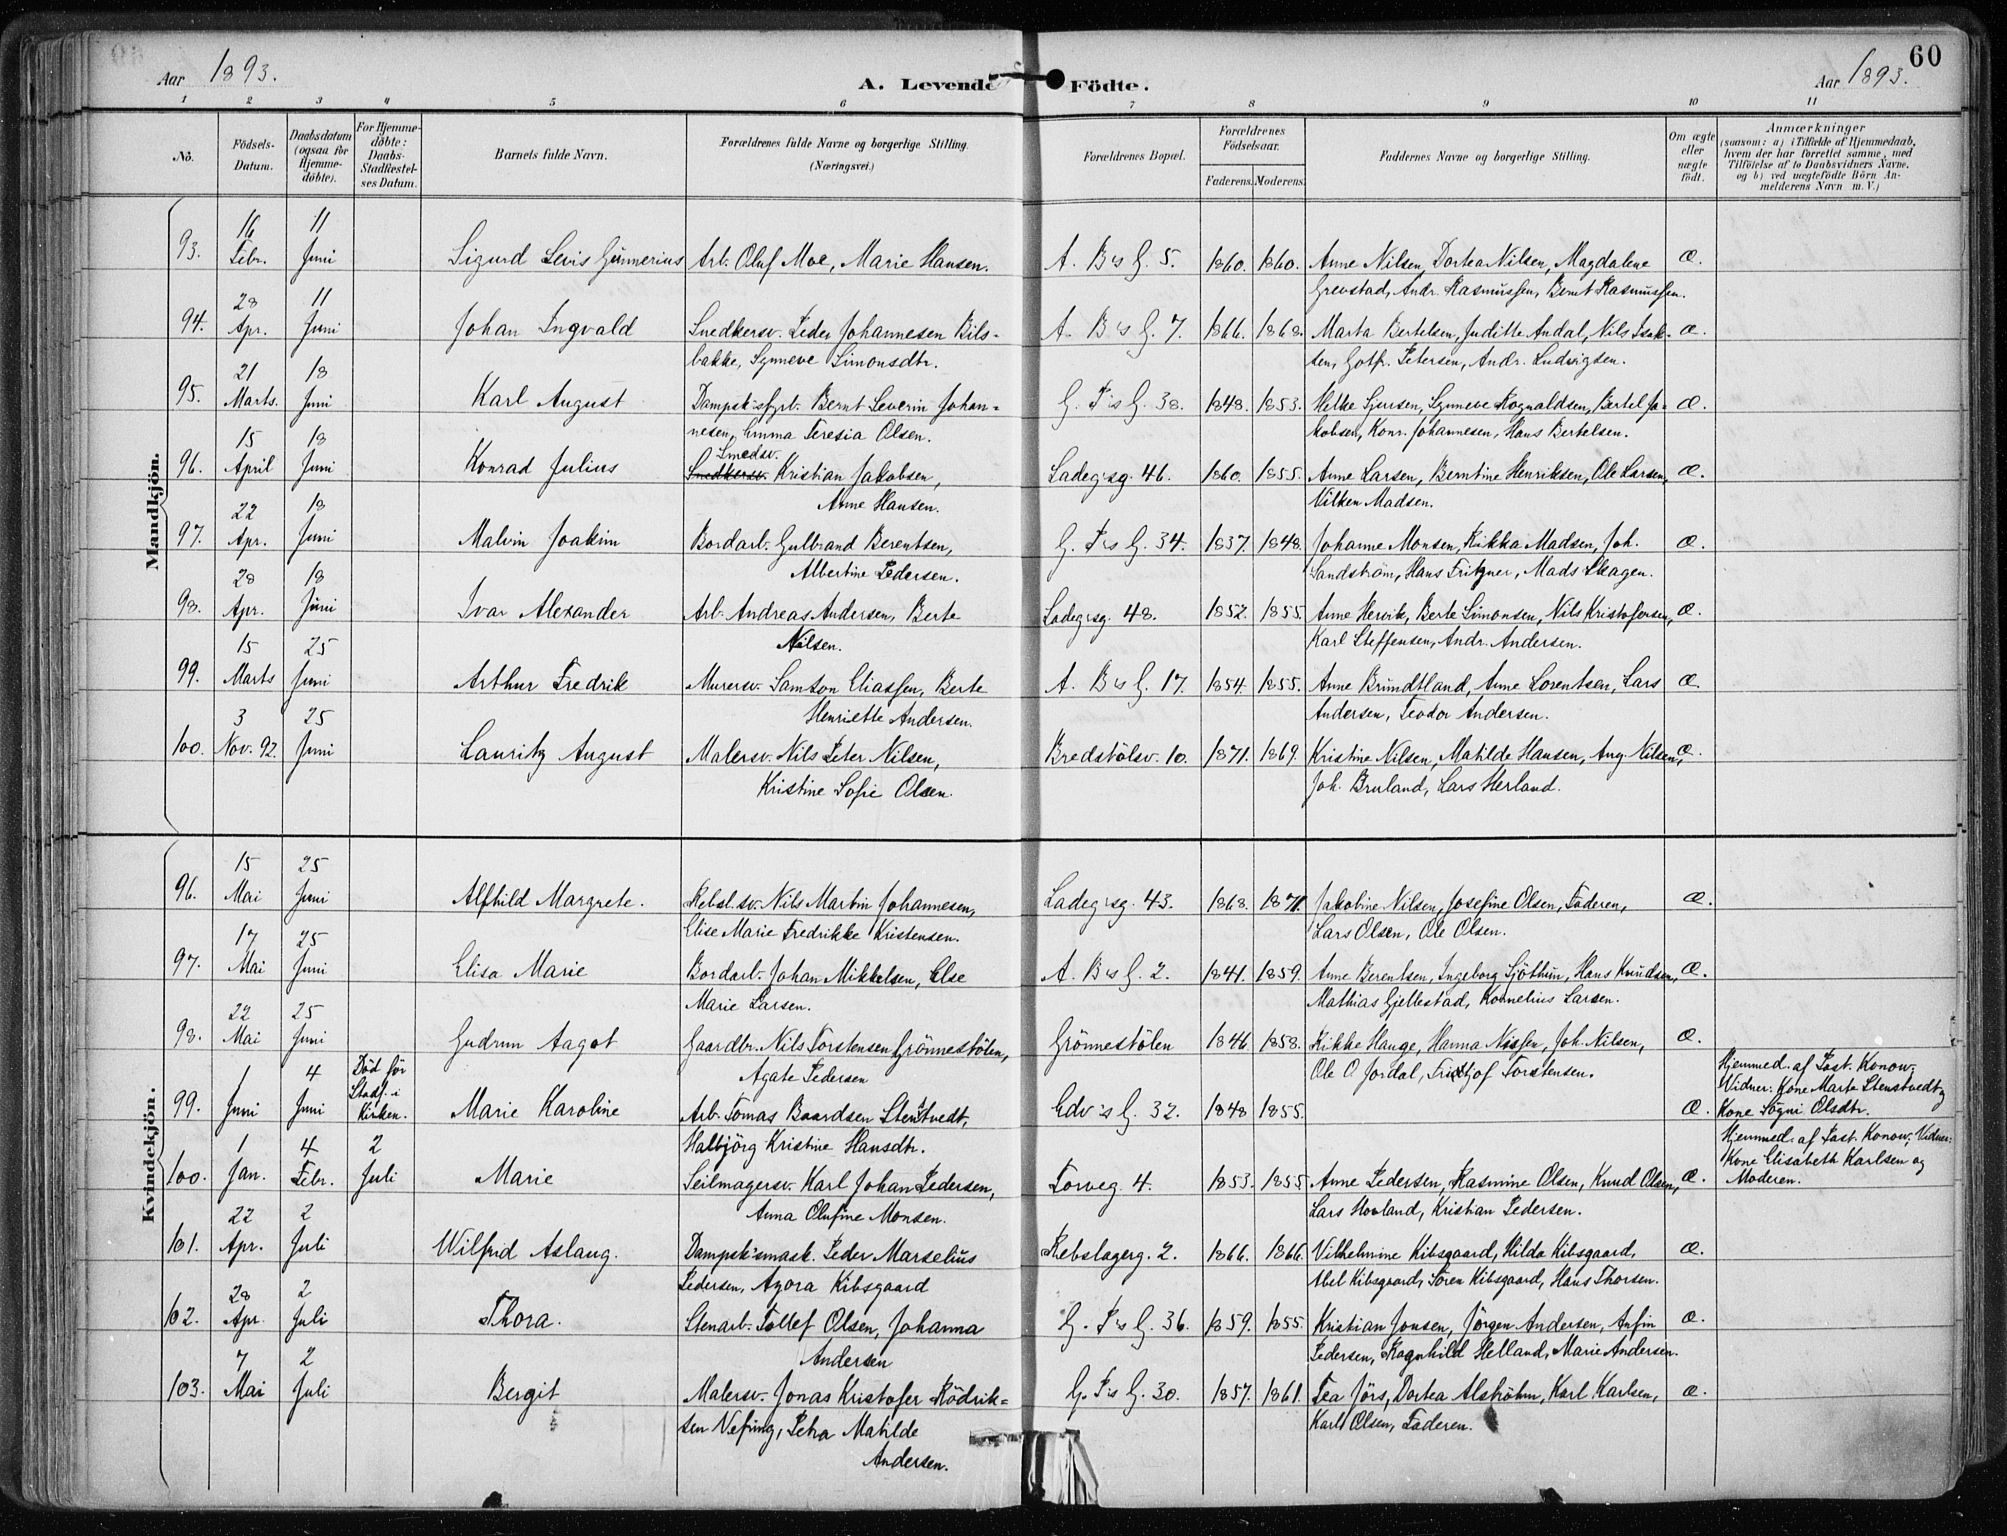 60
Aar 1893.
A. Levende Födte.
Aar 1893.
1 2 3 4 5 6 7 8 9 10 11
No.
Födsels-Datum.
Daabsdatum (ogsaa for Hjemme-döbte).
For Hjemme-döbte: Daabs-Stadfæstel-ses Datum.
Barnets fulde Navn.
Forældrenes fulde Navne og borgerlige Stilling. (Næringsvei.)
Forældrenes Bopæl.
Forældrenes Födselsaar.
Faderens. Moderens.
Faddernes Navne og borgerlige Stilling.
Om ægte eller uægte födt.
Anmærkninger
(saasom: a) i Tilfælde af Hjemmedaab, hvem der har forrettet samme, med Tilföielse af to Daabsvidners Navne, og b) ved uægtefödte Börn An-melderens Navn m. V.)
Mandkjön.
93. 16 Febr. 11 Juni Sigurd Levis Gunnerius Arb. Oluf Moe, Marie Hansen. A. B's G. 5. 1860. 1860. Anne Nilsen, Dortea Nilsen, Magdalene Æ.
Grevstad, Andr. Rasmussen, Bernt Rasmussen.
94. 28 Apr. 11 Juni Johan Ingvald Snedkersv. Peder Johannesen Bils- A. B's G. 7. 1866. 1868. Marta Bertelsen, Juditte Andal, Nils Isak- Æ.
bakke, Synneve Simonsdtr. sen, Gotfr. Petersen, Andr. Ludvigsen.
95. 21 Marts. 18 Juni Karl August Dampsk'sfyrb. Bernt Severin Johan- G. P's G. 38. 1848. 1853. Sjursen, Synneve Rognaldsen, Bertel Ja- Æ.
nesen, Emma Teresia Olsen. kobsen, Konr. Johannesen, Hans Bertelsen.
96. 15 April 18 Juni Konrad Julius Snedkersv. Smedsv. Kristian Jakobsen, Ladeg'sg. 46. 1860. 1855. Anne Larsen, Berntine Henriksen, Ole Larsen, Æ.
Anne Hansen. Vilken Madsen.
97. 22 Apr. 18 Juni Malvin Joakim Bordarb. Gulbrand Berentsen, G. P's G. 34. 1837. 1848. Johanne Monsen, Rikka Madsen, Joh. Æ.
Albertine Pedersen. Sandström, Hans Fritzner, Mads Skagen.
98. 28 Apr. 18 Juni Ivar Alexander Arb. Andreas Andersen, Berte Ladeg'sg. 48. 1852. 1855. Anne Hervik, Berte Simonsen, Nils Kristofersen, Æ.
Nilsen. Karl Steffensen, Andr. Andersen.
99. 15 Marts 25 Juni Arthur Fredrik Murersv. Samson Eliassen, Berte A. B's G. 17. 1854. 1855. Anne Brundtland, Anne Lorentsen, Lars Æ.
Henriette Andersen. Andersen, Teodor Andersen.
100. 3 Nov. 92. 25 Juni Lauritz August Malersv. Nils Peter Nilsen, Bredstölsv. 10. 1871. 1869. Kristine Nilsen, Matilde Hansen, Aug. Nilsen, Æ.
Kristine Sofie Olsen. Joh. Bruland, Lars Herland.
Kvindekjön.
96. 15 Mai 25 Juni Alfhild Margrete. Rebsl.sv. Nils Martin Johannesen, Ladeg'sg. 43. 1868. 1871. Jakobine Nilsen, Josefine Olsen, Faderen, Æ.
Elise Marie Fredrikke Kristensen. Lars Olsen, Ole Olsen.
97. 17 Mai 25 Juni Elisa Marie Bordarb. Johan Mikkelsen, Else A. B's G. 2. 1841. 1859. Anne Berentsen, Ingeborg Sjöthun, Hans Knudsen, Æ.
Marie Larsen. Mathias Gjellestad, Kornelius Larsen.
98. 22 Mai 25 Juni Gudrun Aagot Gaardbr. Nils Torstensen Grönnestölen, Grönnestölen 1846. 1858. Rikke Hauge, Hanna Nissen, Joh. Nilsen, Æ.
Agate Pedersen Ole O. Jordal, Fridtjof Torstensen.
99. 1 Juni 4 Juni Död før Stadf. i Kirken. Marie Karoline Arb. Tomas Baardsen Stenstvedt, Edv's G. 32. 1848 1855. Æ. Hjemmed. af Past. Konow, Vidner: Kone Marta Stenstvedt og Kone Sögni Olsdtr.
Halbjörg Kristine Hansdtr.
100. 1 Jan. 4 Febr. 2 Juli Marie Seilmagersv. Karl Johan Pedersen, Torveg. 4. 1853. 1855 Anne Pedersen, Rasmine Olsen, Knud Olsen, Æ. Hjemmed. af Past. Konow; Vidner: Kone Elisabeth Karlsen og Moderen.
Anna Olufine Monsen. Lars Hovland, Kristian Pedersen.
101. 22 Apr. 2 Juli Wilfrid Aslaug. Dampsk'smask. Peder Marselius Rebslagerg. 2. 1866. 1866. Vilhelmine Kibsgaard, Hilda Kibsgaard, Æ.
Pedersen, Agora Kibsgaard Abel Kibsgaard, Sören Kibsgaard, Hans Thorsen.
102. 28 Apr. 2 Juli Thora. Stenarb. Tollef Olsen, Johanna G. P's G. 36. 1859. 1855. Kristian Jonsen, Jörgen Andersen, Anfin Æ.
Andersen Pedersen, Ragnhild Helland, Marie Andersen.
103. 7 Mai 2 Juli Bergit Malersv. Jonas Kristofer Rödrik- G. P's G. 30. 1857. 1861. Tea Jörs, Dortea Alströhm, Karl Karlsen, Æ.
sen Vefring, Petra Matilde Karl Olsen, Faderen.
Andersen.